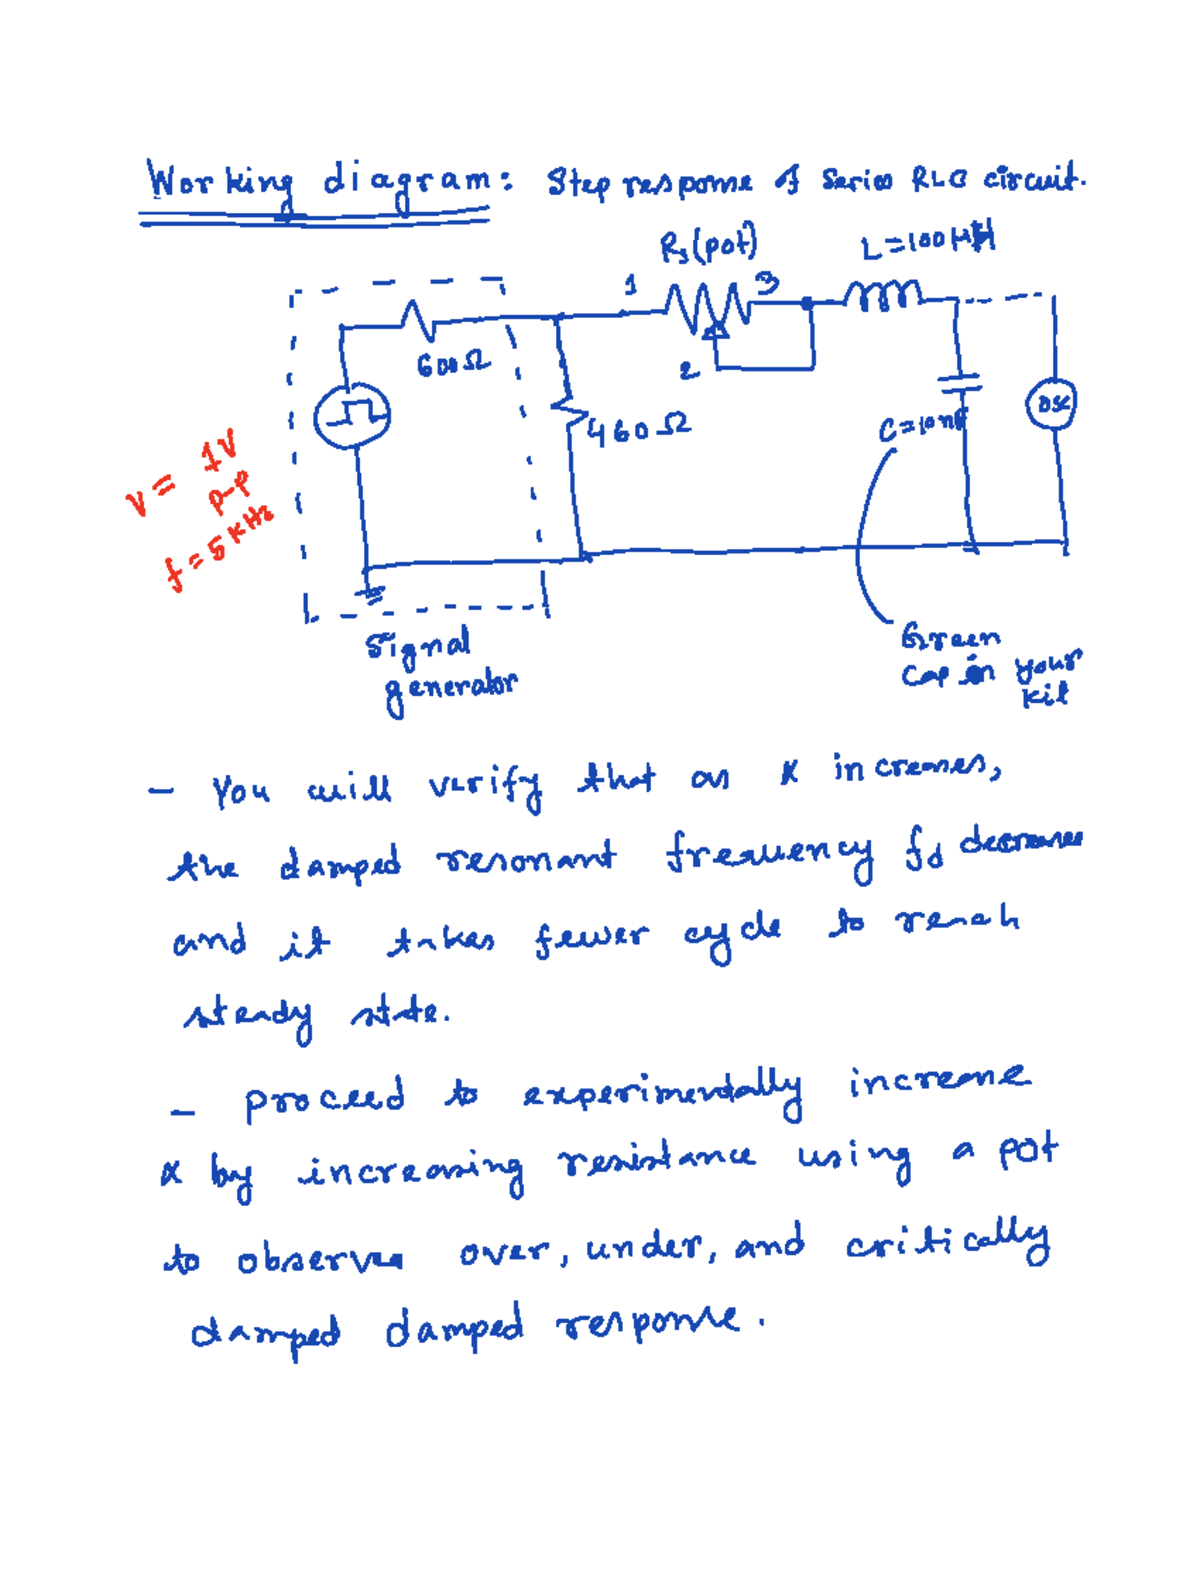 Working diagram: Step response of Series RLC circuit.
Rs (pot)
L = 100 μH
1
3
2
600Ω
460Ω
C = 10 nF
OSC
V = 1V
p-p
f = 5 KHz
Signal
generator
Green
Cap in your
kit
- You will verify that as α increases,
the damped resonant frequency fd decreases
and it takes fewer cycle to reach
steady state.
- proceed to experimentally increase
α by increasing resistance using a pot
to observe over, under, and critically
damped damped response.